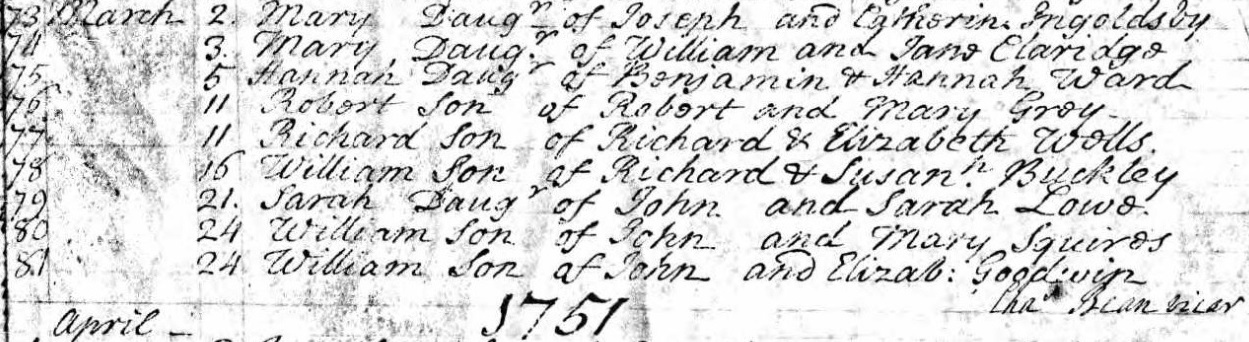 73 March 2. Mary Daugr of Joseph and Catherin Ingoldsby
74 3. Mary Daugr of William and Jane Claridge
75 5 Hannah Daugr of Benjamin & Hannah Ward
76 11 Robert Son of Robert and Mary Grey
77 11 Richard Son of Richard & Elizabeth Wells.
78 16 William Son of Richard & Susanh. Buckley
79 21. Sarah Daugr of John and Sarah Lowe.
80 24 William Son of John and Mary Squires
81 24 William Son of John and Elizab: Goodwin
Cha Bean vicar
April 1751